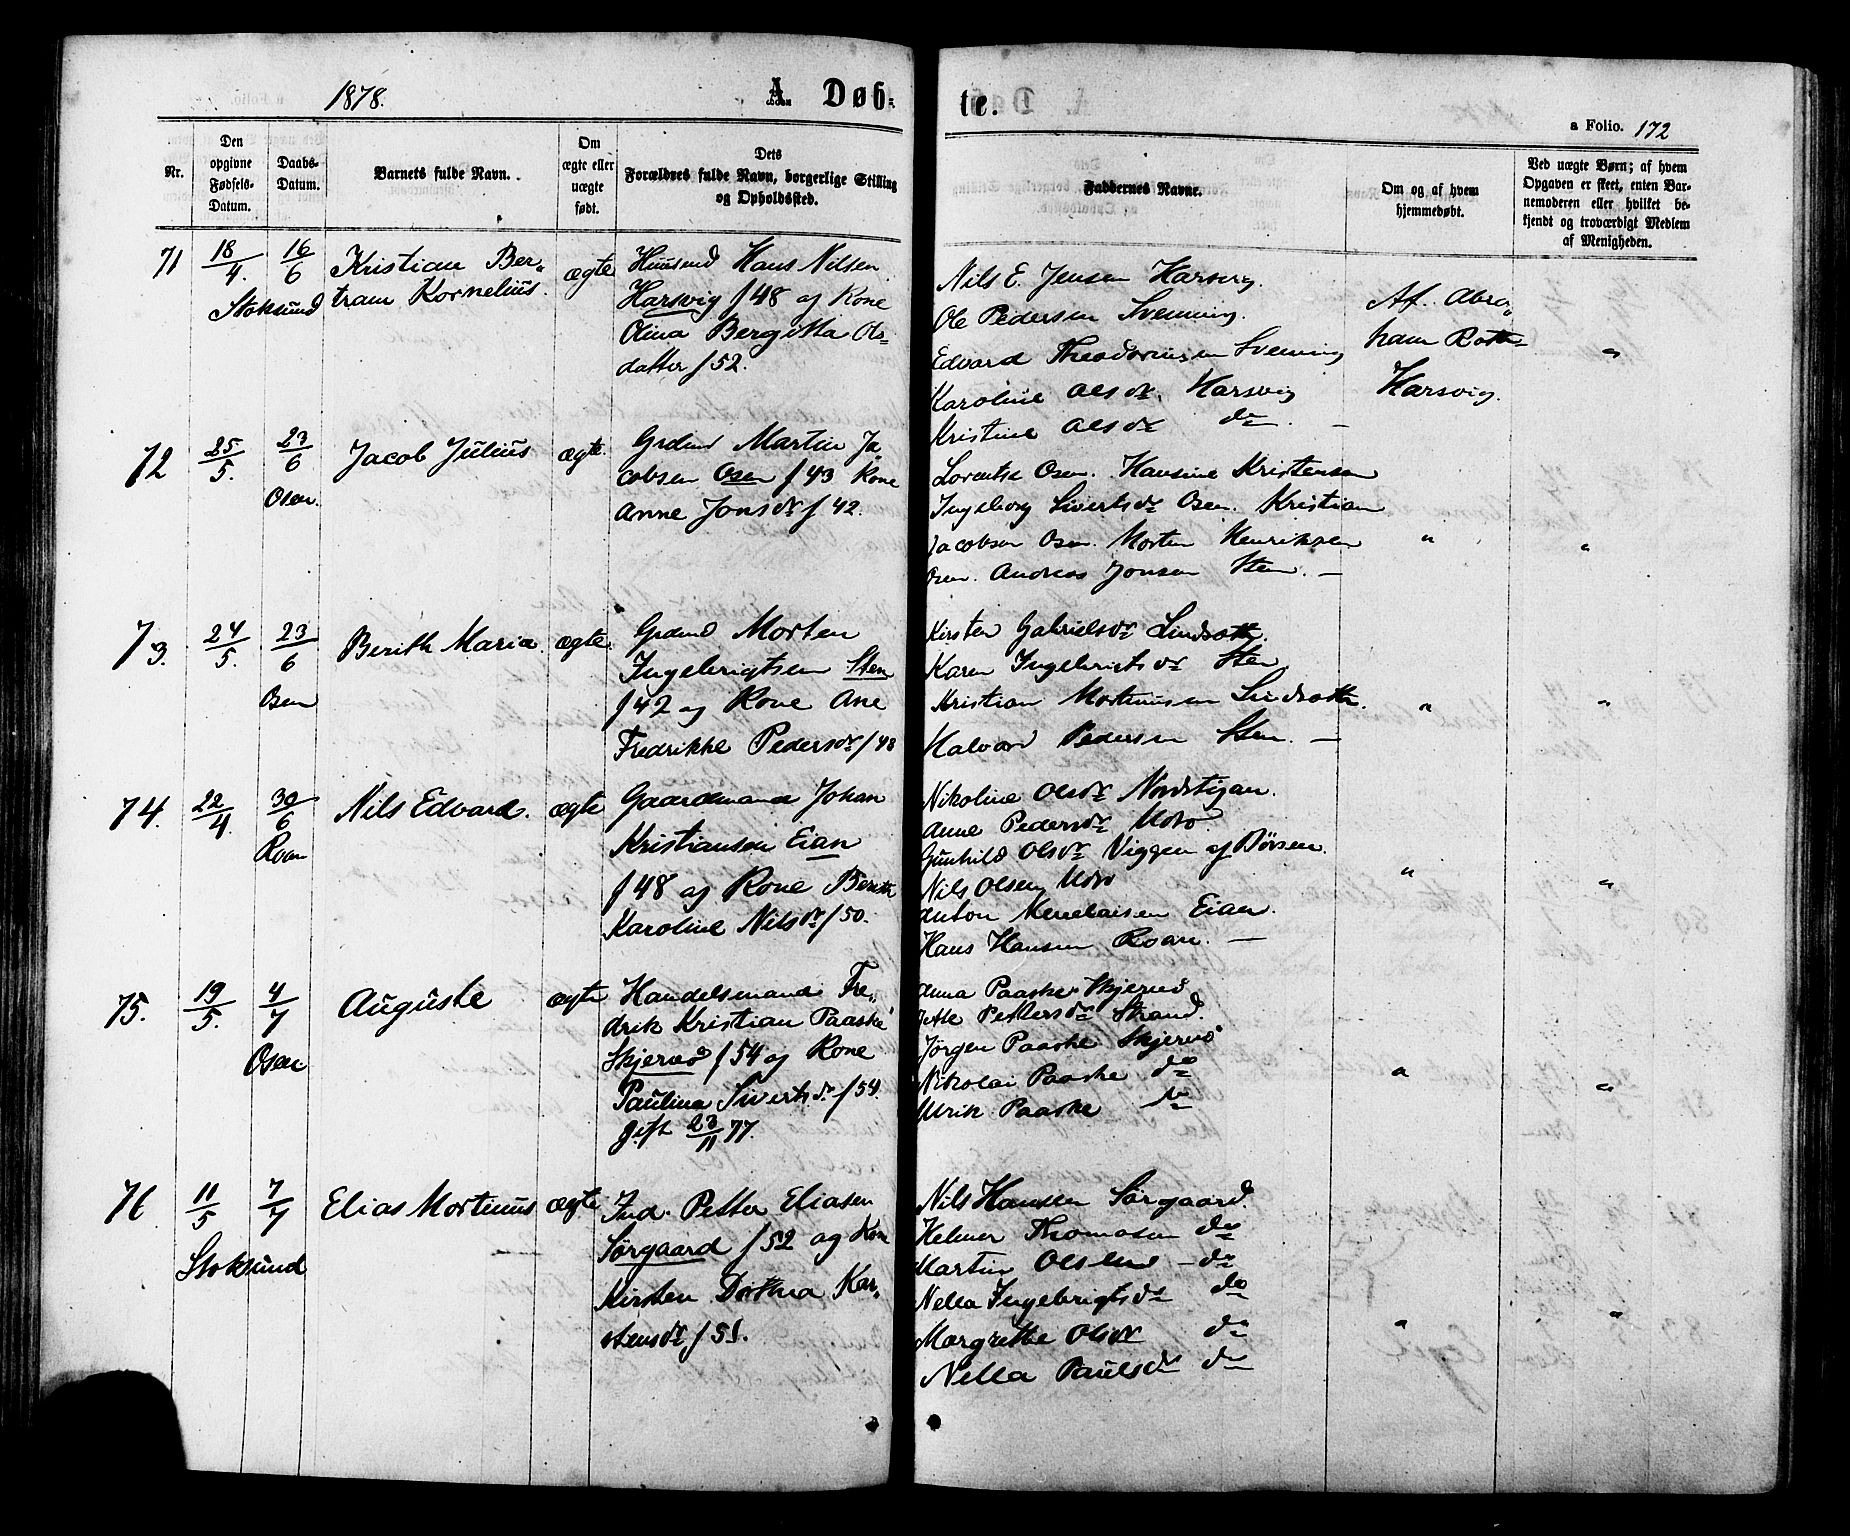 1878.
A Døb-
te.
a Folio. 172
Nr.
Den
opgivne
Fødsels-
Datum.
Daabs-
Datum.
Barnets fulde Navn.
Om
ægte eller
uægte
født.
Dets
Forældres fulde Navn, borgerlige Stilling
og Opholdssted.
Faddernes Navne.
Om og af hvem
hjemmedøbt.
Ved uægte Børn; af hvem
Opgaven er skeet, enten Bar-
nemoderen eller hvilket be-
kjendt og troværdigt Medlem
af Menigheden.
71
18/4.
16/6
Stoksund
Kristian Ber-
tram Kornelius.
ægte
Huusmd Hans Nilsen
Harsvig f 48 og Kone
Olina Bergitta Ols-
datter f 52.
Nils E. Jensen Harsvig.
Ole Pedersen Svenning.
Edvard Theodorinsen Svenning
Karoline Olsdr. Harsvig
Kristine Olsdr do. —
Af. Abra-
ham
Harsvig.
"
72
25/5.
23/6
Osen.
Jacob Julius
ægte.
Grdmd Martin Ja-
cobsen Osen f 43 Kone
Anne Jonsdr f 42.
Lorentse Osen. Hansine Kristensen
Ingeborg Sivertsdr Osen. Kristian
Jacobsen Osen. Morten Henriksen
Osen. Andreas Jonsen Sten. —
"
"
73.
24/5.
23/6
Osen
Berith Maria.
ægte.
Grdmd Morten
Ingebrigtsen Sten
f 42 og Kone Ane
Fredrikke Pedersdr f 48
Kirsten Gabrielsdr Lindsæth.
Karen Ingebrigtsdr Sten
Kristian Mortinusen Lindsæth.
Halvard Pedersen Sten. —
"
"
74.
22/4.
30/6
Roan
Nils Edvard.
ægte
Gaardmand Johan
Kristiansen Eian
f 48 og Kone Berith
Karoline Nilsdr f 50.
Nikoline Olsdr Nordstigan.
Anne Pedersdr Moro.
Gunhild Olsdr Viggen af Børsen.
Nils Olsen Moro
Anton Menelaisen Eian.
Hans Hansen Roan. —
"
"
75.
19/5.
4/7
Osen
Auguste
ægte
Handelsmand Fre-
drik Kristian Paaske
Skjervø f 54 og Kone
Paulina Sivertsdr f 54.
gift 23/11 77.
Anna Paaske Skjervø
Jette Pettersdr Strand.
Jørgen Paaske Skjervø
Nikolai Paaske do
Ulrik Paaske do
"
"
76
11/5
7/7
Stoksund
Elias Mortinus
ægte
Ind. Petter Eliasen
Sørgaard f 52 og Kone
Kirsten Dorthea Kar-
stensdr f 51.
Nils Hansen Sørgaard.
Helmer Thomasen do
Martin Olsen — do
Nella Ingebrigtsdr do
Margrethe Olsdr do
Nella Paulsdr do
"
"